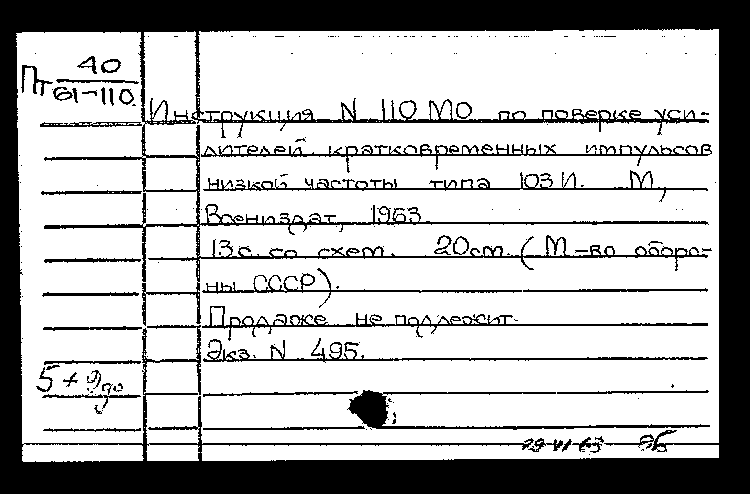 40
Пт 61-110.
Инструкция N 110 МО по поверке уси-
лителей кратковременных импульсов
низкой частоты типа 103 И. М,
Воениздат, 1963.
13с. со схем. 20см. (М-во оборо-
ны СССР).
Продаже не подлежит.
Экз. N 495.
5 + 9
29 VI 63